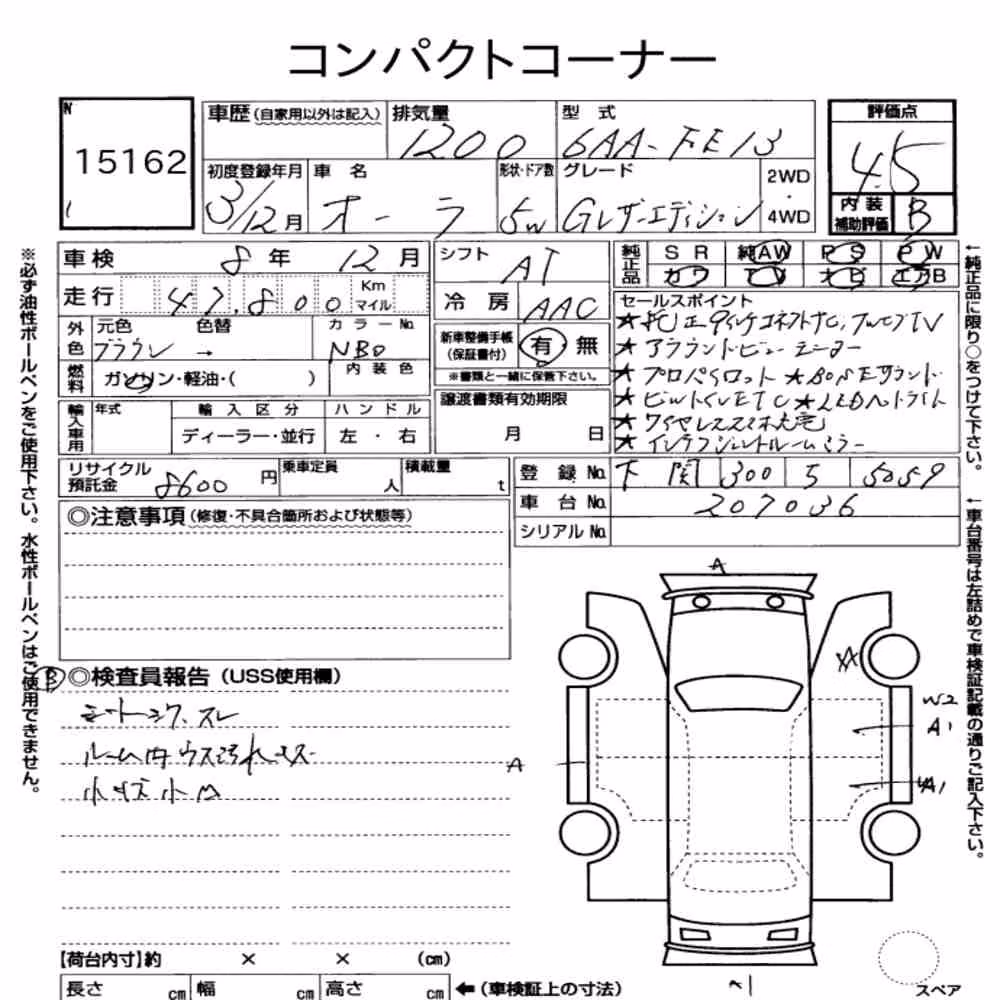 コンパクトコーナー
N
15162
車歴 (自家用以外は記入)
排気量
1200
型 式
6AA-FE13
評価点
4.5
内装
補助評価
B
初度登録年月
3/12月
車 名
オーラ
形状・ドア数
5W
グレード
Gレザーエディション
2WD
・
4WD
車検 8年 12月
走行 47,800 Km マイル
シフト AT
冷 房 AAC
純正品
SR 純AW PS PW
カワ TV ナビ エアB
セールスポイント
外色
元色 色替
ブラウン →
カラーNo.
NBO
燃料
ガソリン・軽油・( )
内装色
新車整備手帳
(保証書付)
有 無
※書類と一緒に保管下さい。
★アラウンドビューモニター
★プロパイロット ★BOSEサウンド
★ビルトインETC ★LEDヘッドライト
★インテリジェントルームミラー
輸入車用
年式
輸入区分
ハンドル
ディーラー・並行
左・右
譲渡書類有効期限
月 日
リサイクル
預託金
8600 円
乗車定員
人
積載量
t
登録No. 下関 300 5059
車台No. 207036
シリアルNo.
◎注意事項 (修復・不具合箇所および状態等)
B ◎検査員報告 (USS使用欄)
シートシワ、スレ
ルーム内ウス汚れキズ
小キズ小凹
A
A
W2
A1
A1
【荷台内寸】約 × × (cm)
長さ cm 幅 cm 高さ cm
←(車検証上の寸法)
スペア
※必ず油性ボールペンをご使用下さい。水性ボールペンはご使用できません。
←純正品に限り○をつけて下さい。
←車台番号は左詰めで車検証記載の通りご記入下さい。